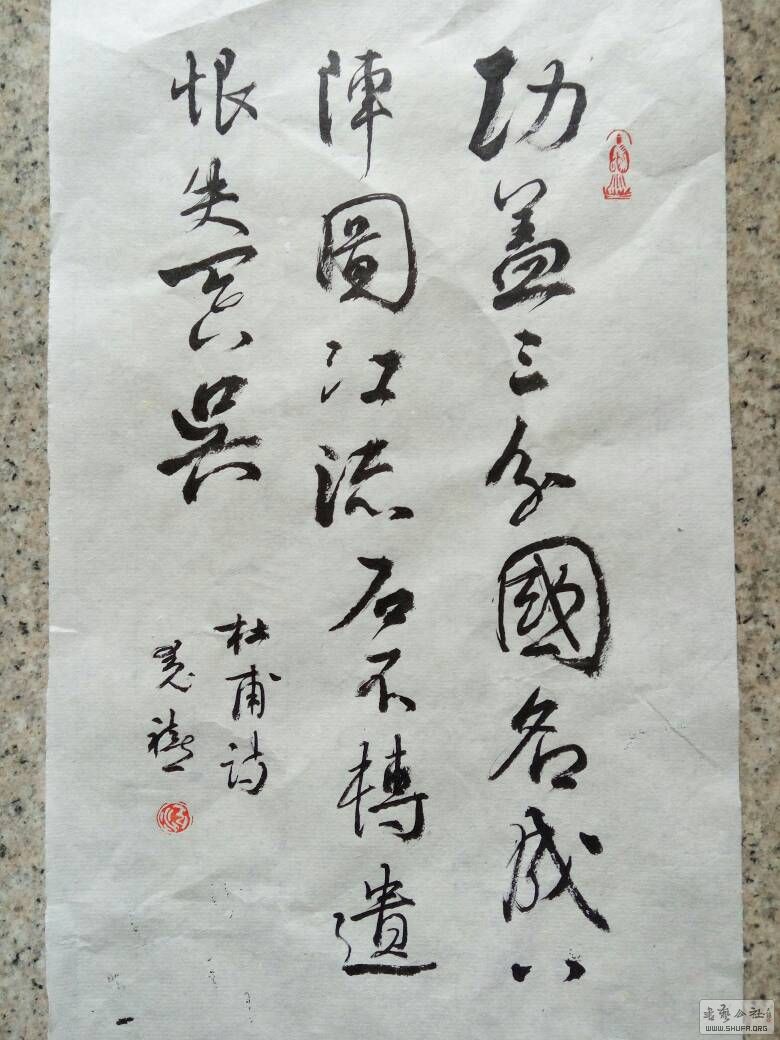 功盖三分國名成八
陣圖江流石不轉遺
恨失吞吴
杜甫诗
書藝公社
WWW.SHUFA.ORG